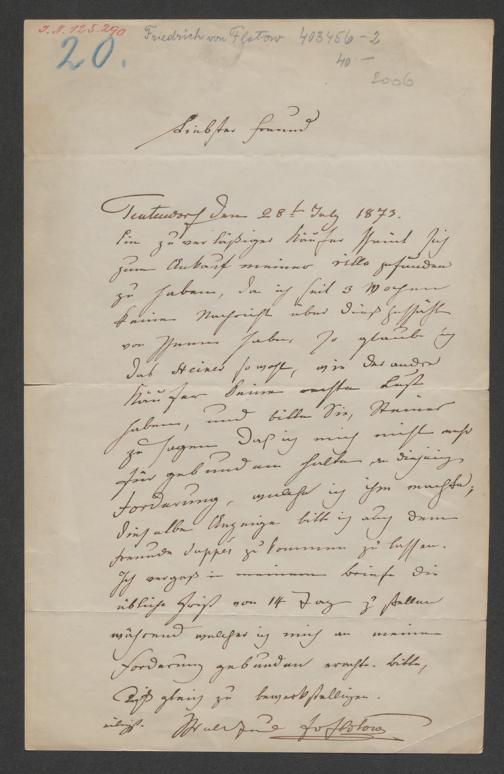 J.N. 125.290
20.
Friedrich von Flotow 403456-2
40 —
2006
Liebster Freund
Teutendorf den 28t July 1873.
Ein zuverläßiger Käufer scheint sich
zum Ankauf meiner Villa gefunden
zu haben, da ich seit 3 Wochen
keine Nachricht über dieß Geschäft
von Ihnen habe, so glaube ich
das sowohl, wie der andre
Käufer keine rechte Lust
haben, und bitte Sie,
zu sagen daß ich mich nicht mehr
für gebunden halte an diejenige
Forderung, welche ich ihm machte;
dieselbe Anzeige bitte ich auch dem
Freunde zu kommen zu lassen.
Ich vergaß in meinem Briefe die
übliche Frist von 14 Tag z' stellen
während welcher ich mich an meine
Forderung gebunden erachte. Bitte,
dieß gleich zu bewerkstelligen.
eiligst. Flotow